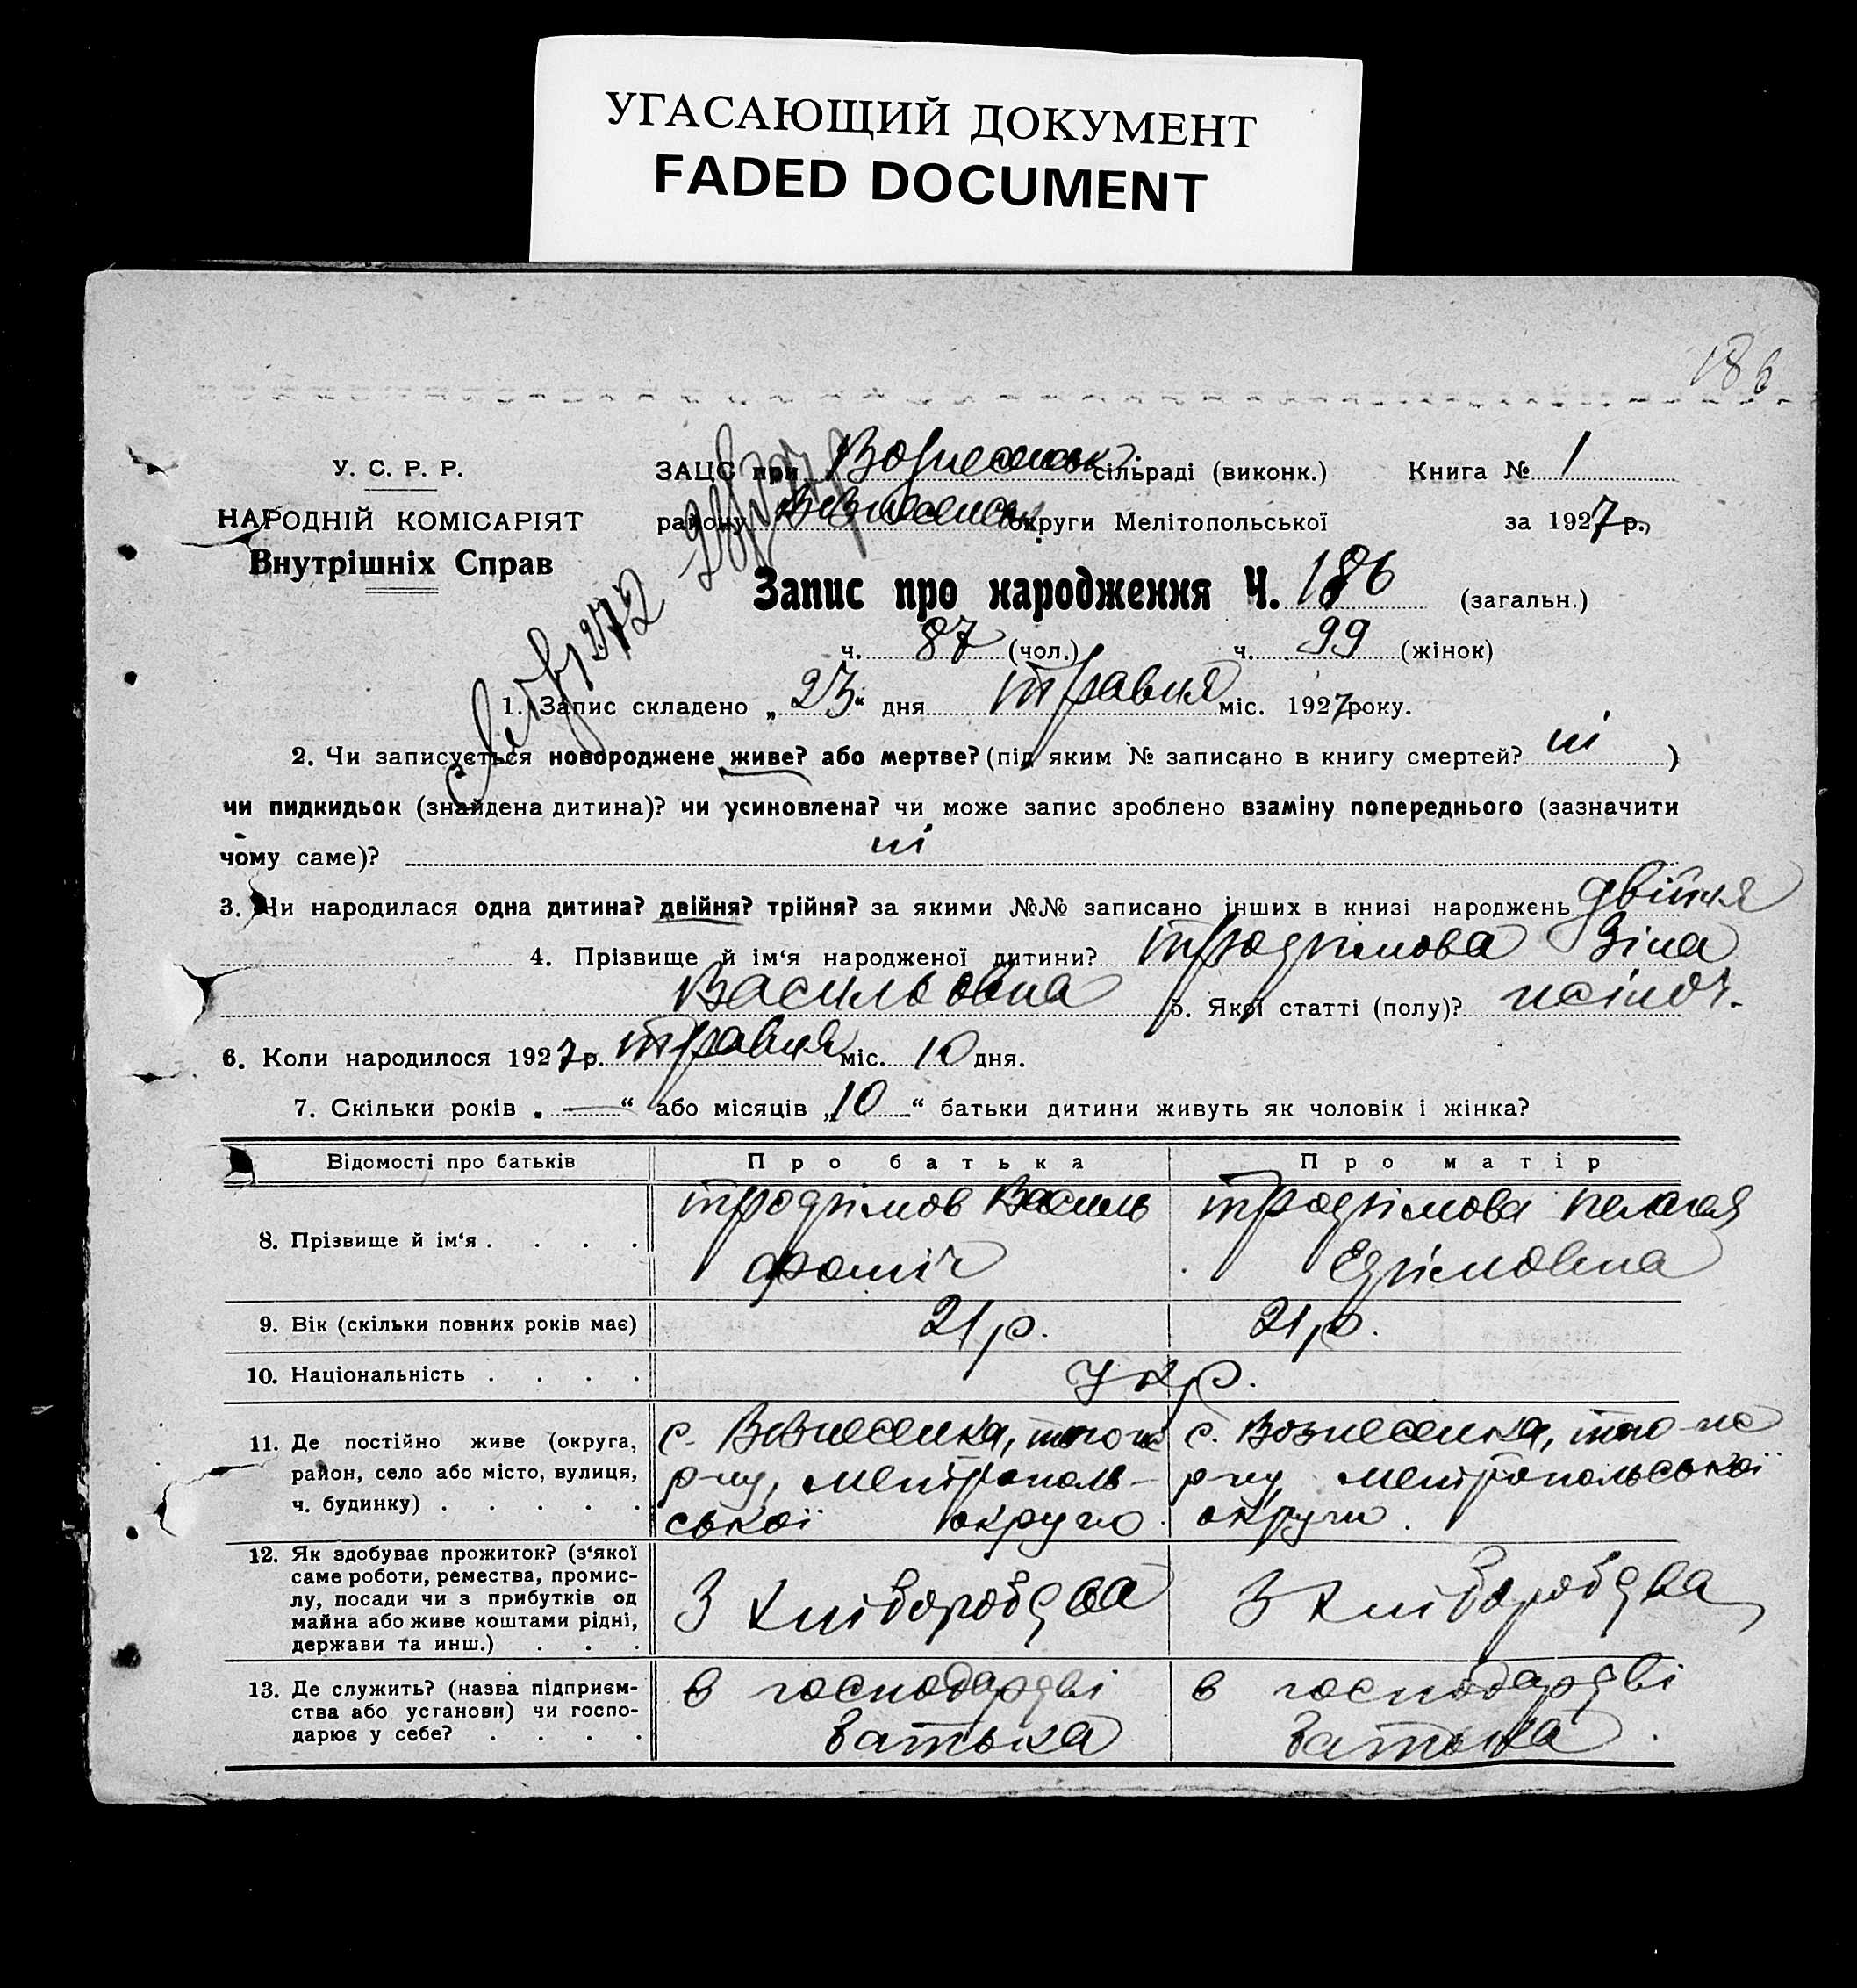 УГАСАЮЩИЙ ДОКУМЕНТ
FADED DOCUMENT
186
У. С. Р. Р.
НАРОДНІЙ КОМІСАРІЯТ
Внутрішніх Справ
ЗАЦС при Вознесенськ. сільраді (виконк.) Книга № 1
району Вознесенськ. округи Мелітопольської за 1927 р.
Запис про народження Ч. 186 (загальн.)
ч. 87 (чол.) ч. 99 (жінок)
272
1. Запис складено „23“ дня травня міс. 1927 року.
2. Чи записується новороджене живе? або мертве? (під яким № записано в книгу смертей? ні )
чи пидкидьок (знайдена дитина)? чи усиновлена? чи може запис зроблено взаміну попереднього (зазначити
чому саме)? ні
3. Чи народилася одна дитина? двійня? трійня? за якими №№ записано інших в книзі народжень двійня
4. Прізвище й ім‘я народженої дитини? Трофімова Зіна
Васильовна 5. Якої статті (полу)? жіноч.
6. Коли народилося 1927 р. травня міс. 10 дня.
7. Скільки років „ — “ або місяців „10“ батьки дитини живуть як чоловік і жінка?
Відомості про батьків Про батька Про матір
8. Прізвище й ім‘я . . . . Трофімов Василь Фоміч Трофімова Пелагея Єфімовна
9. Вік (скільки повних років має) 21 р. 21 р.
10. Національність . . . . Укр.
11. Де постійно живе (округа, район, село або місто, вулиця, ч. будинку) . . . . . с. Вознесенка, того ж р-ну, Мелітопольської округи с. Вознесенка, того ж р-ну, Мелітопольської округи.
12. Як здобуває прожиток? (з‘якої саме роботи, ремества, промислу, посади чи з прибутків од майна або живе коштами рідні, держави та инш.) . . . З хліборобдва З хліборобдва
13. Де служить? (назва підприємства або установи) чи господарює у себе? . . . . в господардві батька в господардві батька.